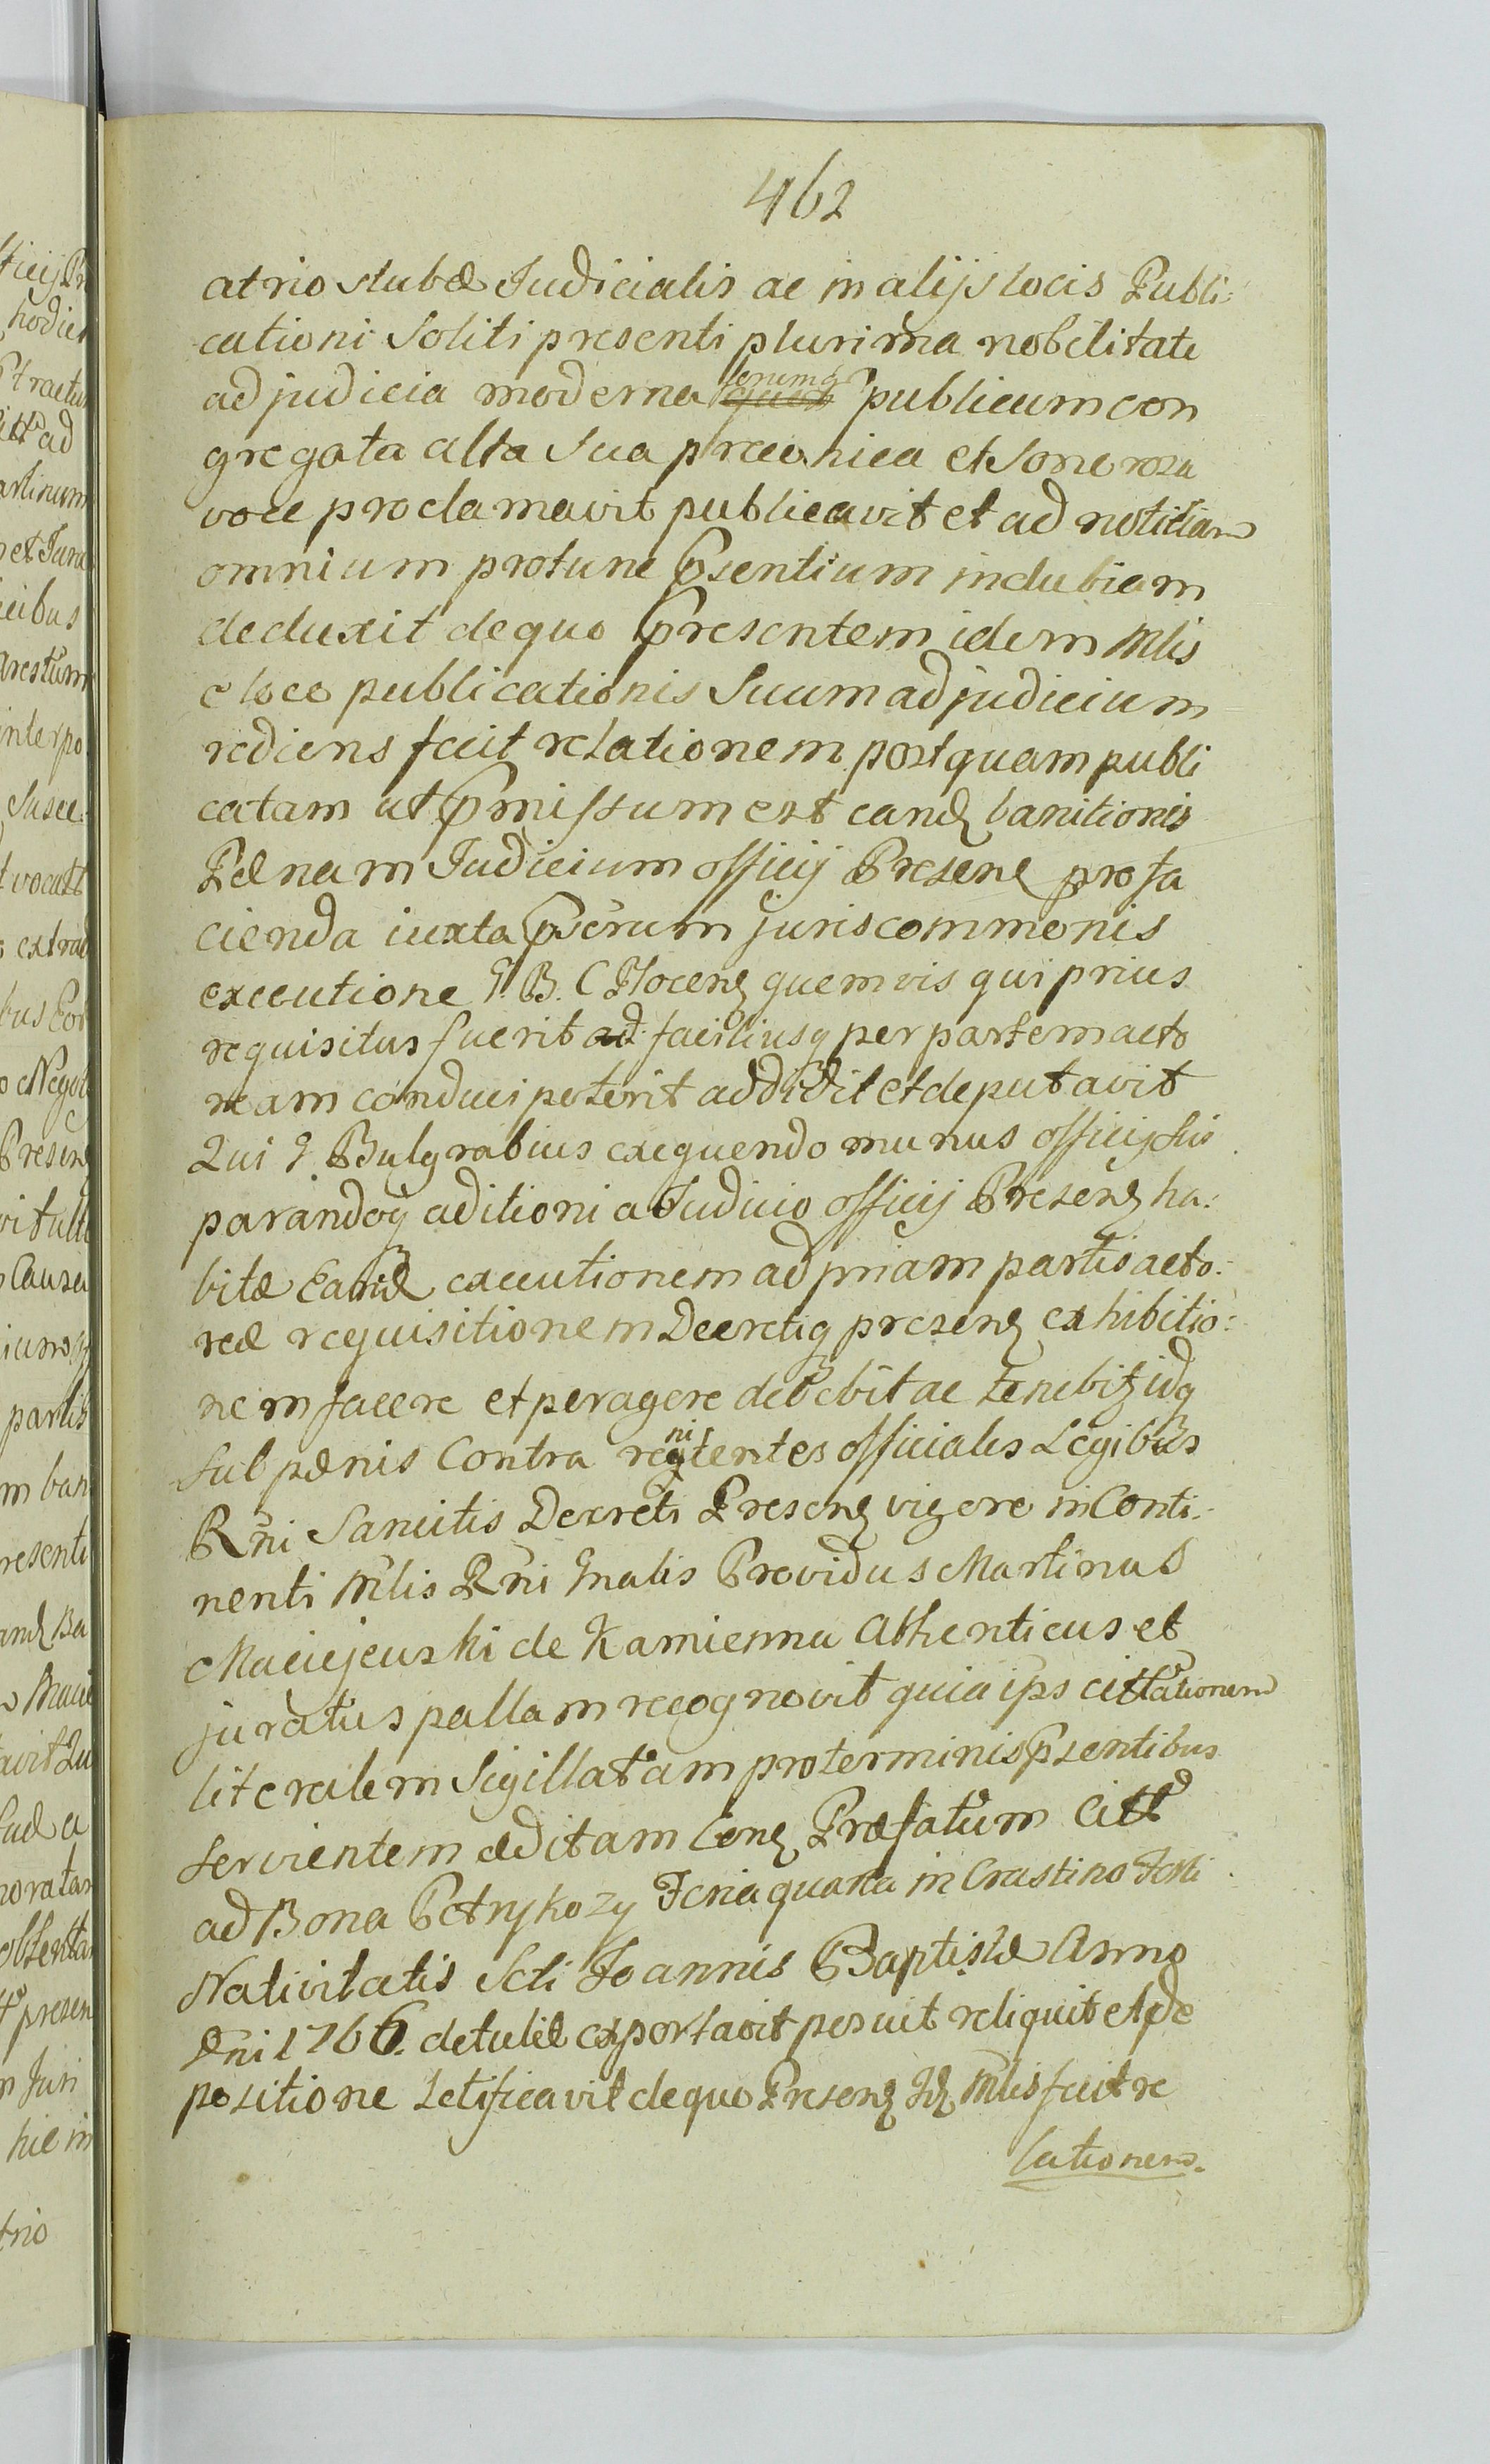 462
atrio stubæ Judicialis ac in alijs locis Publi:
cationi Soliti presenti plurima nobilitate
ad judicia moderna ferumq publicum con
gregata alta Sua preconica et Sonoroza
voce proclamavit publicavit et ad notitiam
omnium protunc Psentium indubiam
deduxit de quo Presentem idem Mlis
e loco publicationis Suum ad judicium
rediens fecit relationem postquam publi
catam ut Pmissum est eand banitionis
Pænam Judicium officij Presene pro fa
cienda iuxta Pscrum juris commonis
executione G. B. C Ploceng quemvis qui prius
requisitus fuerit ad faciliusq per partem acto
ream conduci poterit addidit et deputavit
Qui G Bulgrabius exequendo munus officij Sui
parandoq aditioni a Judicio officij Preseng ha:
bitæ Eand executionem ad priam partis acto:
reæ requisitionem Decretiq preseng exhibitio:
nem facere et peragere debebit ac tenebitz idq
Sub pænis Contra renitentes officiales Legibus
Rni Sancitis Decreti Preseng vigore in Conti:
nenti Mlis Rni Gnalis Providus Martinus
Maciejeuski de Kamienna Athenticus et
juratus pallam recognovit quia ips cittationem
literalem Sigillatam pro terminis Psentibus
Servientem æditam Cong Præfatum Citt
ad Bona Petrykozy Feria quarta in Crastino Festi
Nativitatis Scti Joannis Baptistæ Anno
Dni 1766. detulit exportavit posuit reliquit et de
positione Letificavit de quo Preseng Id Mlis fecit re
lationem.
ticij Pr
hodier
artinum
et Jura
icibus
arestum
interpo
Susce:
vocatt
extrad
bus Eor
Preseng
Causa
partis
m ban
resenti
and Ba
noratam
presen
m Juri
hic in
trio